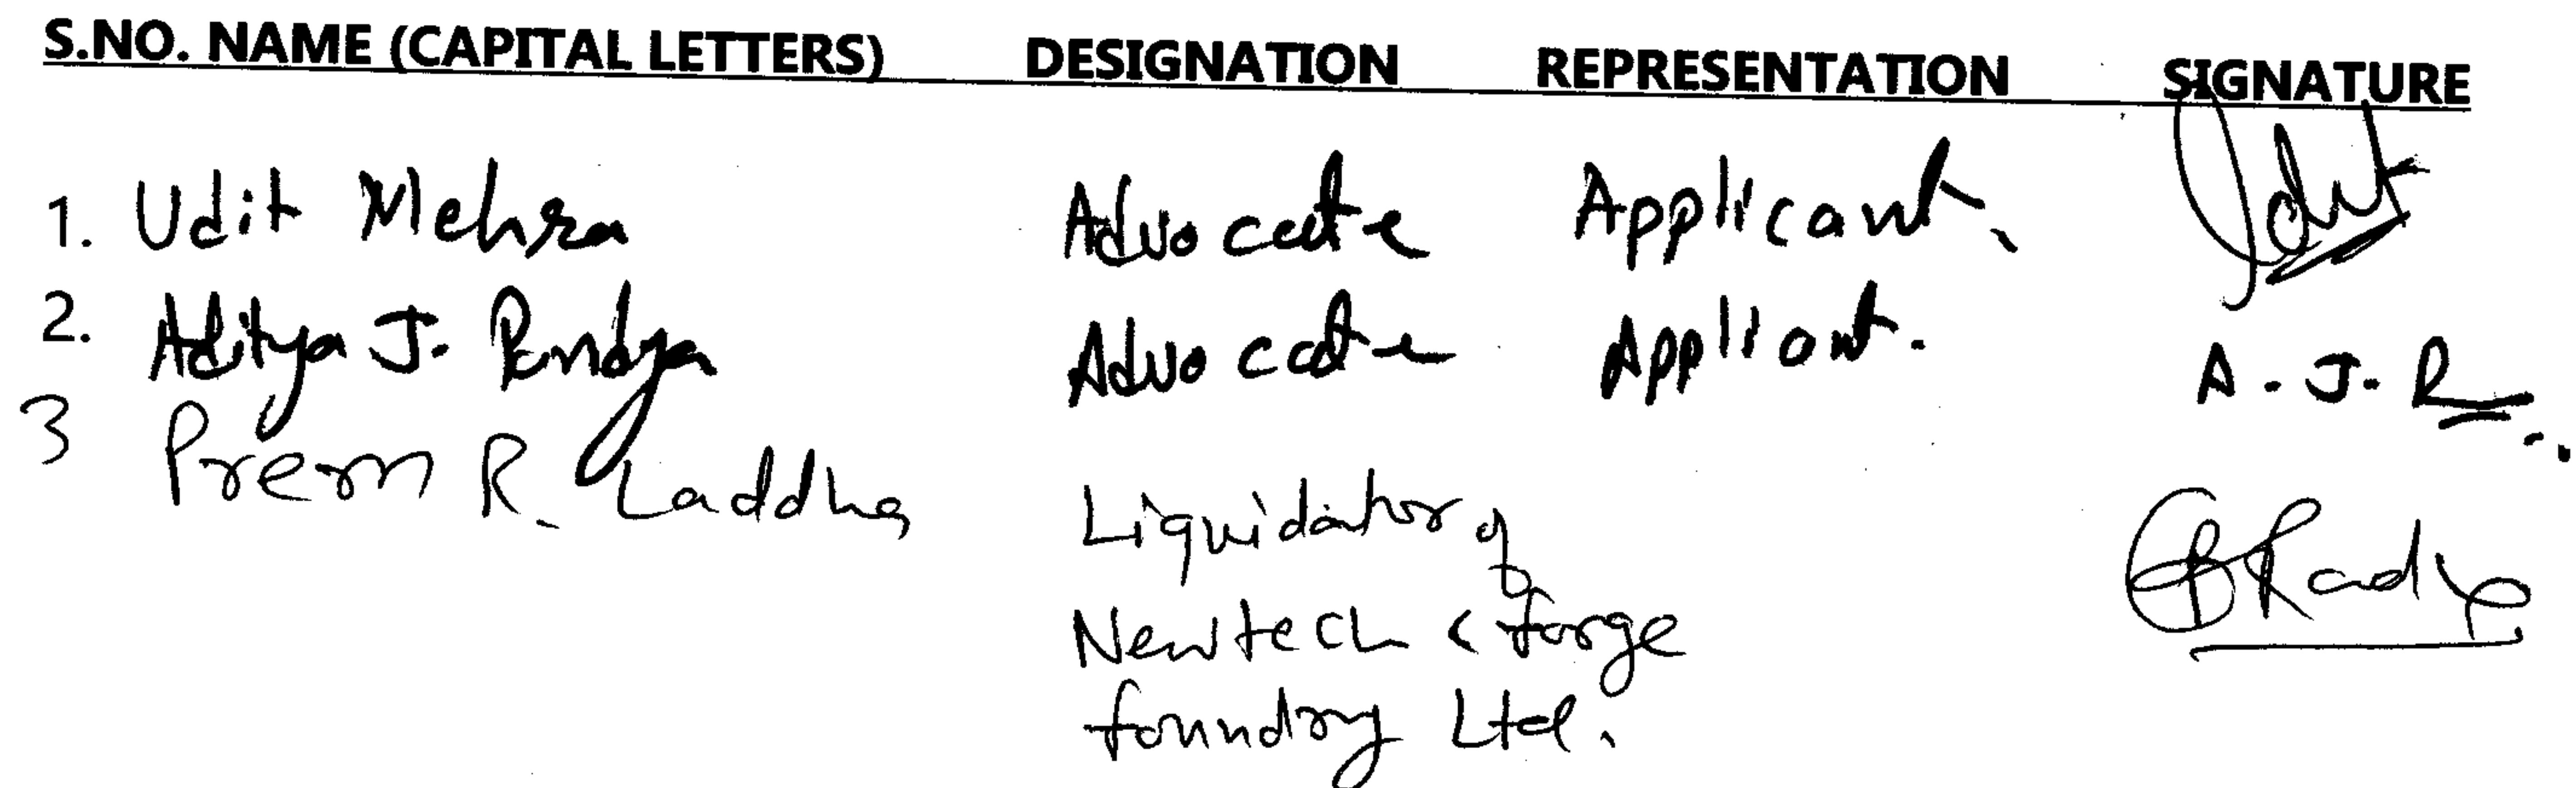 S.NO. NAME (CAPITAL LETTERS) DESIGNATION REPRESENTATION SIGNATURE
1. Udit Mehra Advocate Applicant. Udit
2. Aditya J. Pandya Advocate Appliant. A. J. P
3 Prem R. Laddha
Liquidator of
Newtech & forge
foundry Ltd.